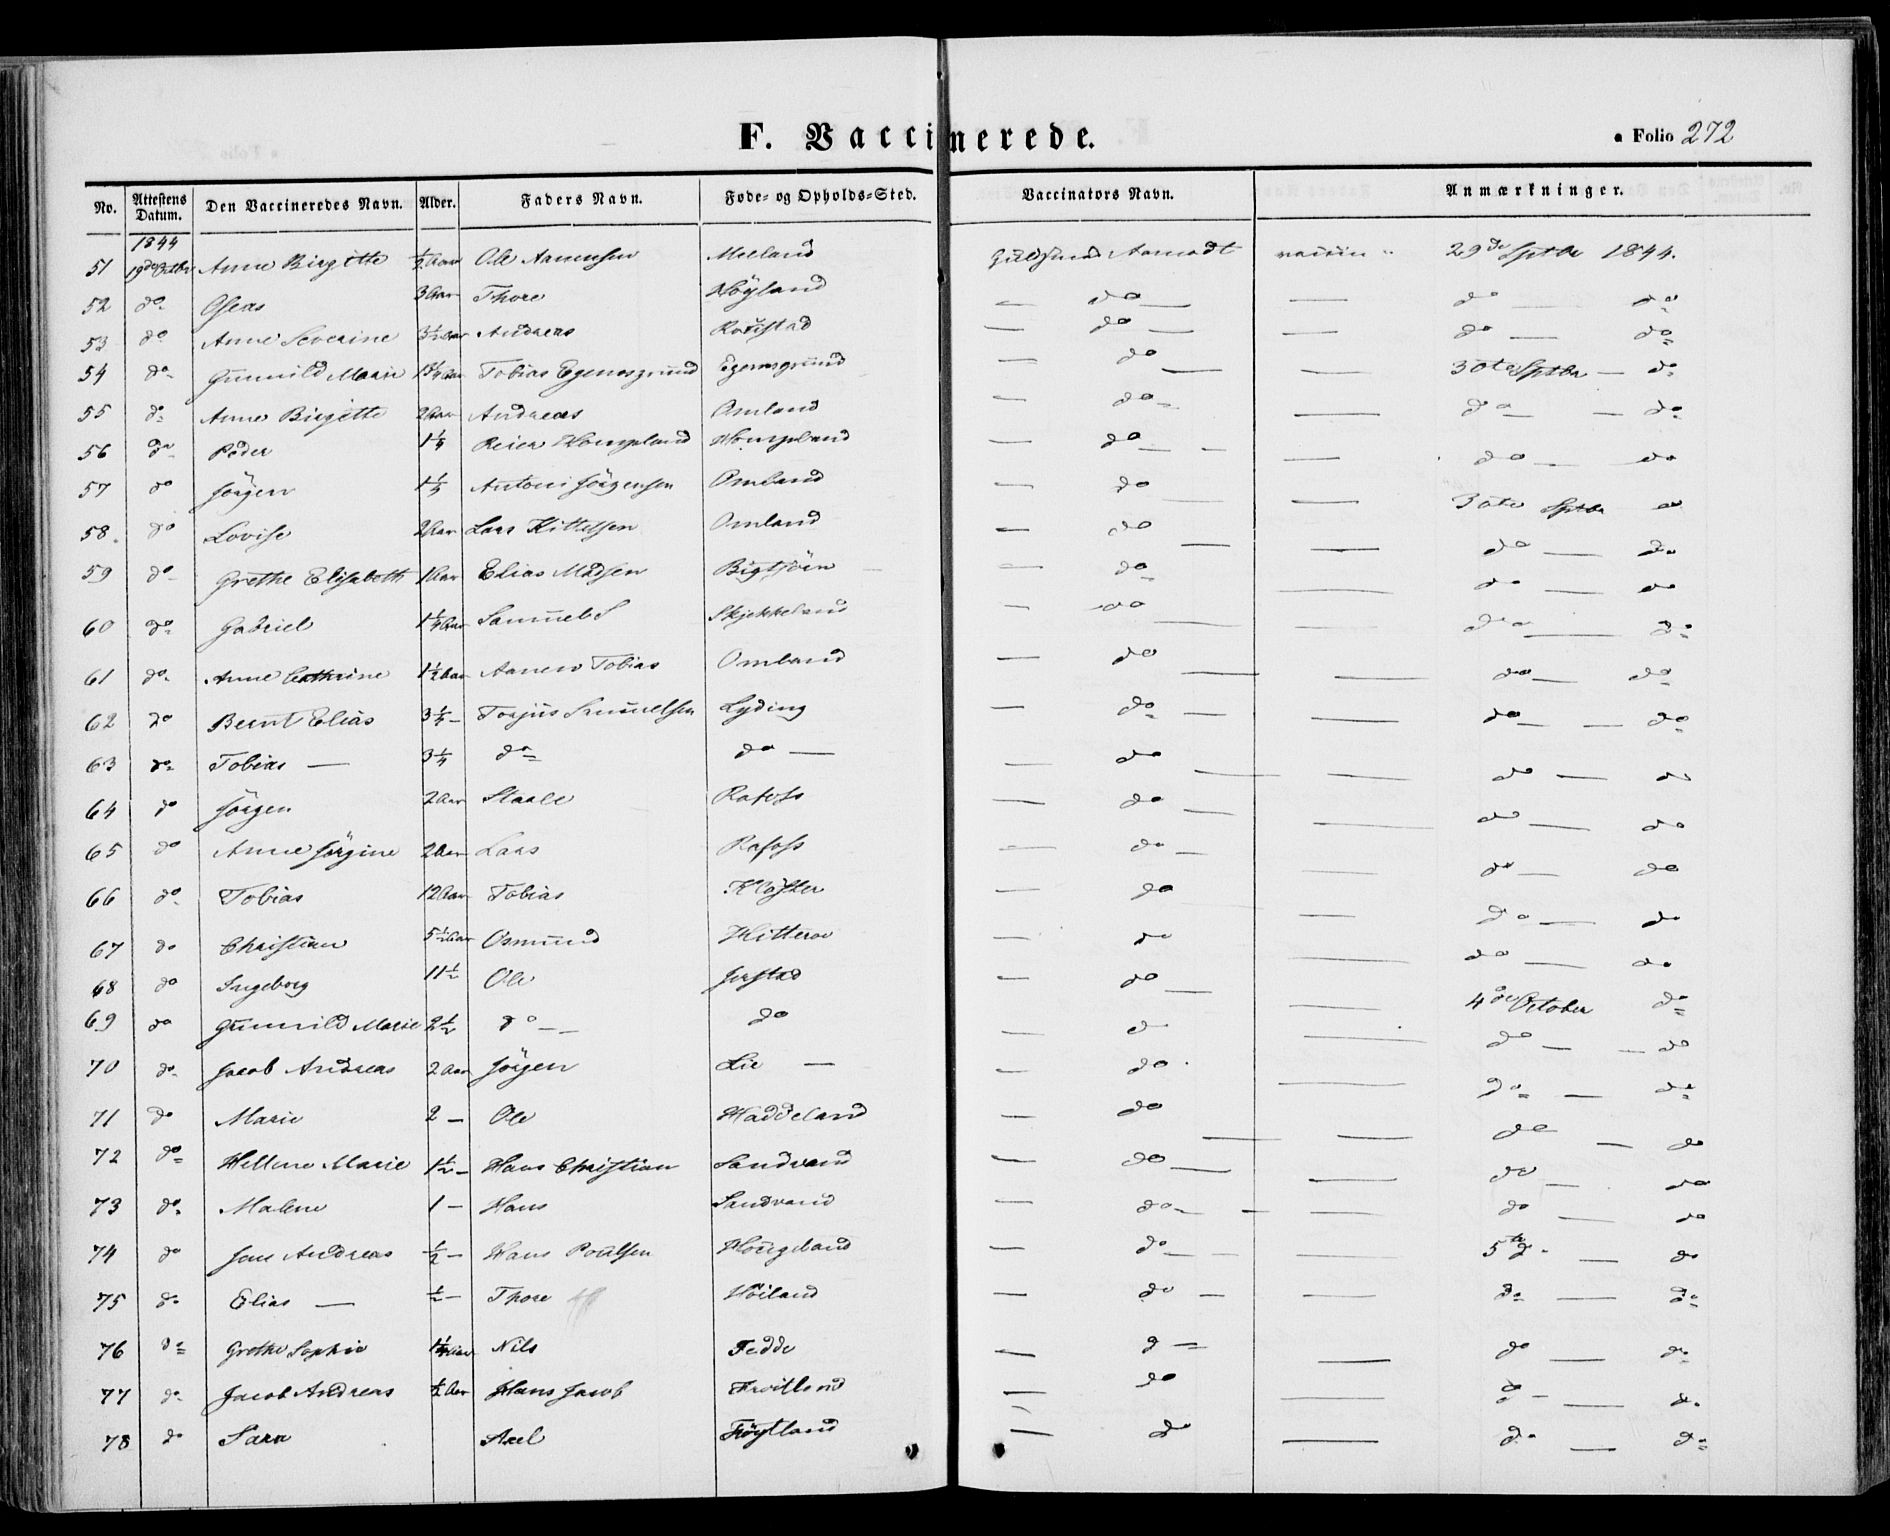 F. Vaccinerede.
Folio 272
No. Attestens Datum. Den Vaccineredes Navn. Alder. Faders Navn. Føde- og Opholds-Sted. Vaccinators Navn. Anmærkninger.
1844
51 19de Octbr Anne Birgitte 1/2 Aar Ole Aanensen Meeland Aamodt vaccin 29de Sptbr 1844.
52 do Oseas 3 Aar Thore Höyland — do — — do — do
53 do Anne Severine 3 1/2 Aar Andreas — do — — do — do
54 do Gunnild Marie Tobias Egenesgrund Egenesgrund — do — — 30te Sptbr — do
55 do Anne Birgitte 2 Aar Andreas Omland — do — — do — do
56 do Peder 1 1/4 Reier — do — — do — do
57 do Jörgen Antoni Jörgensen Omland — do — — 30te Sptbr do
58. do Lovise 2 Aar Lars Kittelsen Omland — do — — do — do
59 do Grethe Elisabeth 1 Aar Elias Madsen — do — do — do
60 do Gabriel 1 1/4 Aar Samuel S Skjekkeland — do — — do — do
61 do Anne Cathrine 1 1/2 Aar Aanen Tobias Omland — do — — do — do
62 do Bernt Elias 3 1/4 — Torjus Samuelsen Lyding — do — — do — do
63 do Tobias — 3 1/4 do do — — do — — do — do
64 do Jörgen 2 Aar Staale Rafoss — do — — do — do
65 do Anne Jörgine 2 Aar Lars Rafoss — do — do — do
66 do Tobias 12 Aar Tobias Klöster — do — do — do
67 do Christian 5 1/2 Aar Osmund Hitteroe — do — do — do
68 do Ingeborg 11 1/2 Ole Jerstad — do — — 4de October do
69 do Gunnild Marie 2 1/2 do — do — d — do — do
70 do Jacob Andreas 2 Aar Jörgen Lie — — do — do — do
71 do Marie 2 — Ole Haddeland — do — — do — do
72 do Hellene Marie 1 1/2 — Hans Christian Sandvand — do — — do — do
73 do Malene 1 — Hans Sandvand — do — — do — do
74 do Andreas 1/2 — Hans Poulsen Hougeland — do — — 5te d — do
75 do Elias — 1/2 — Thore Höiland — do — — do — do
76 do Grethe Sophie Nils Fedde — d — — do — do
77 do Jacob Andreas 1/2 Aar Hans Jacob Fröitland — do — d — do
78 do Sara Axel Fröytland — do — do — do